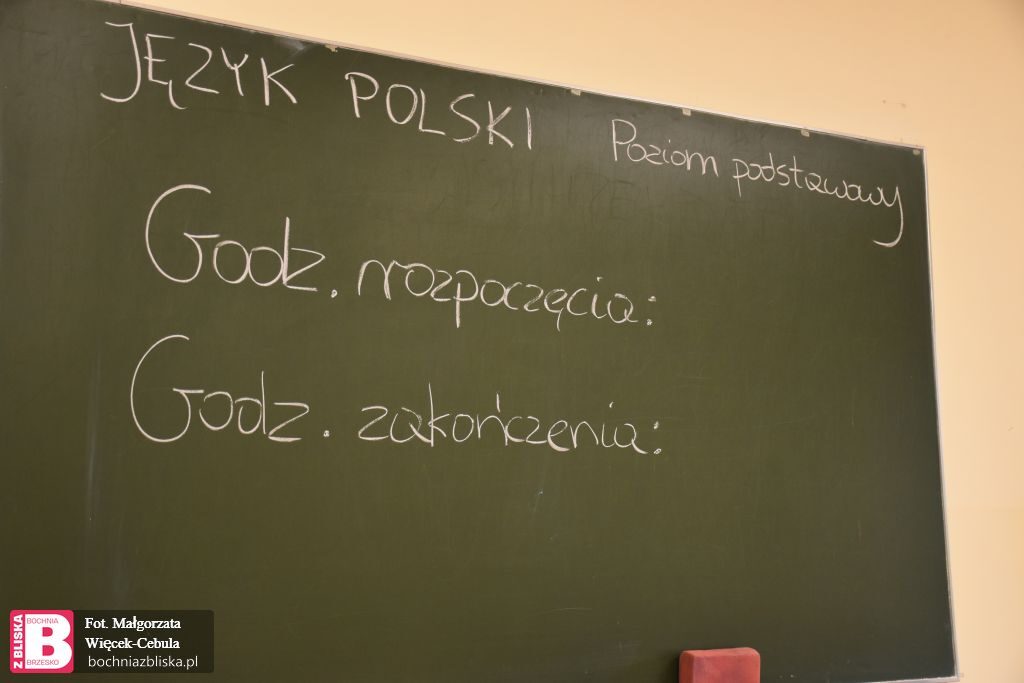 JĘZYK POLSKI Poziom podstawowy
Godz. rozpoczęcia:
Godz. zakończenia:
Z BLISKA
BOCHNIA
B
BRZESKO
Fot. Małgorzata
Więcek-Cebula
bochniazbliska.pl